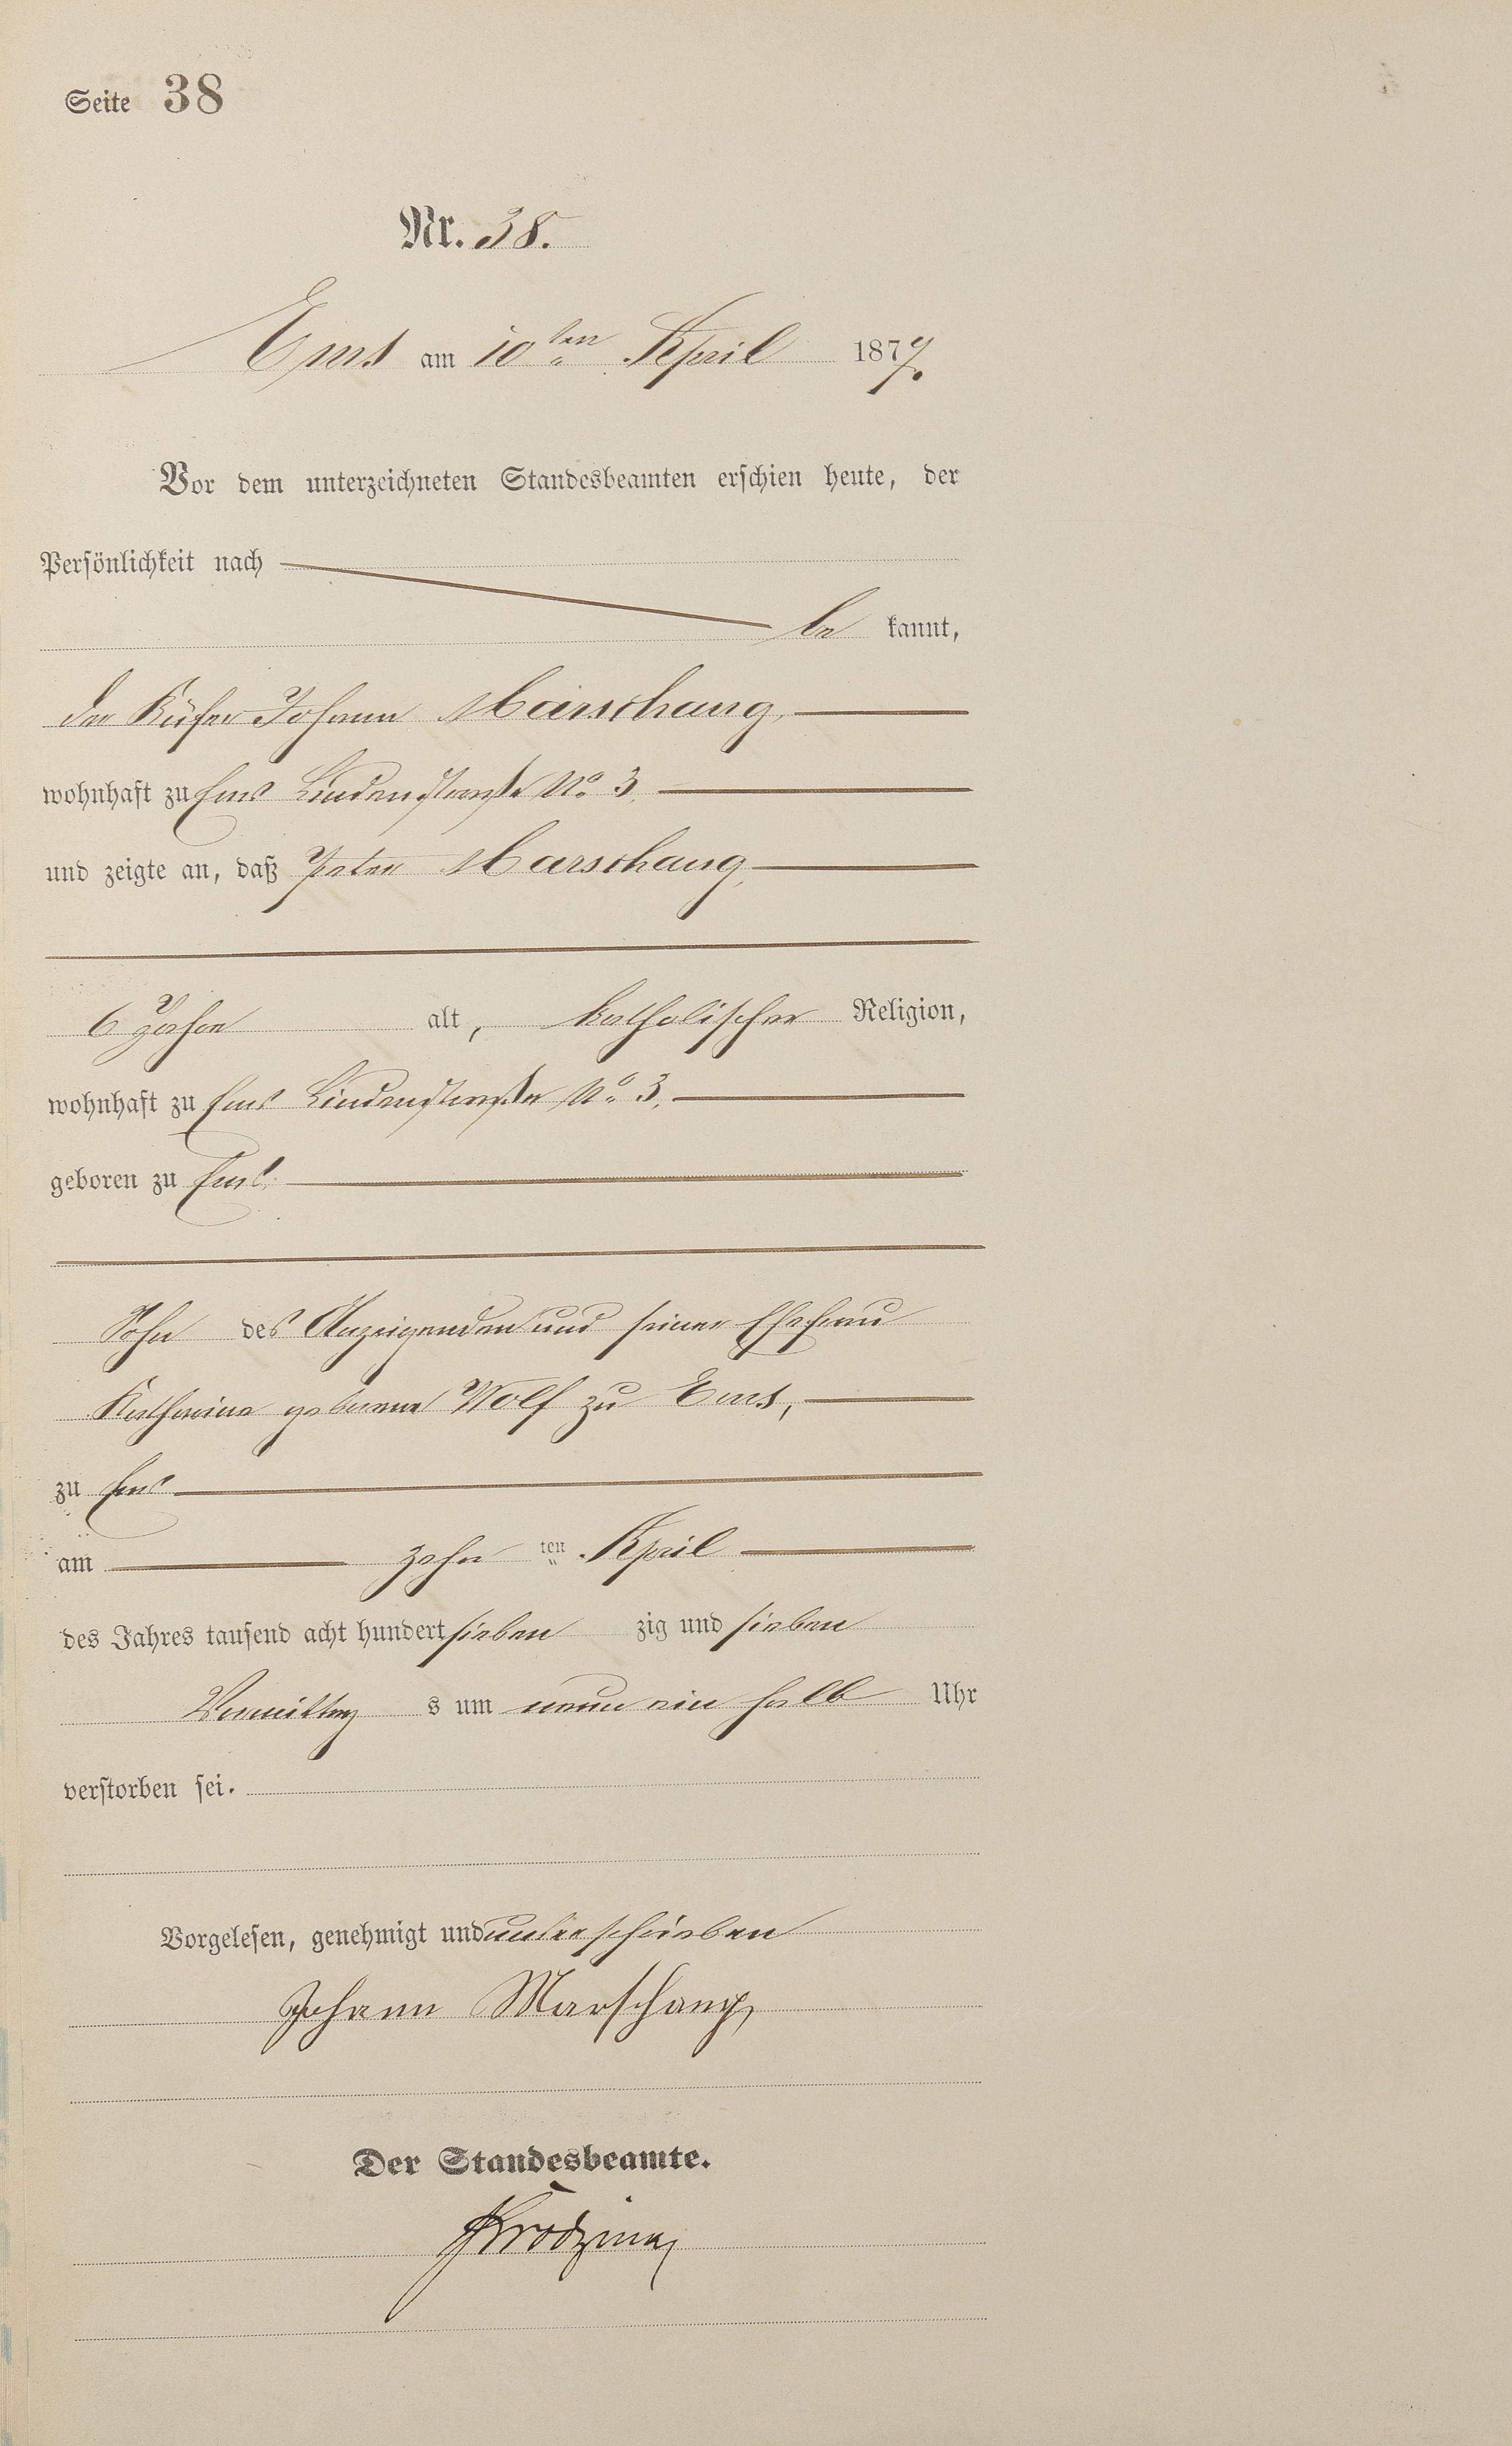 Seite 38
Nr. 38.
Ems am 10ten April 1877.
Vor dem unterzeichneten Standesbeamten erschien heute, der
Persönlichkeit nach
be kannt,
der Küfer Johann Marschang,
wohnhaft zu Ems Lindenstraße No. 3,
und zeigte an, daß Peter Marschang,
6 Jahre alt, katholischer Religion,
wohnhaft zu Ems Lindenstraße No. 3,
geboren zu Ems
Sohn des Anzeigenden und seiner Ehefrau
Katharina geborene Wolf zu Ems,
zu Ems
am zehn ten April
des Jahres tausend acht hundert sieben zig und sieben
Vormittag s um neun ein halb Uhr
verstorben sei.
Vorgelesen, genehmigt und unterschrieben
Johann Marschang
Der Standesbeamte.